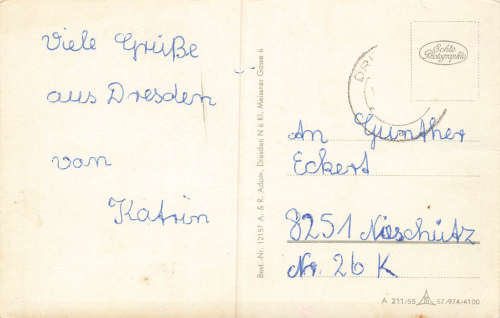 Viele Grüße
aus Dresden
von
Katrin
Best.-Nr. 12157 A. & R. Adam, Dresden N 6 Kl. Meissner Gasse 6
Echte
Photographie
DR
An Gunther
Eckert
8251 Noschütz
Nr. 26 K
A 211/55 57/974/4100